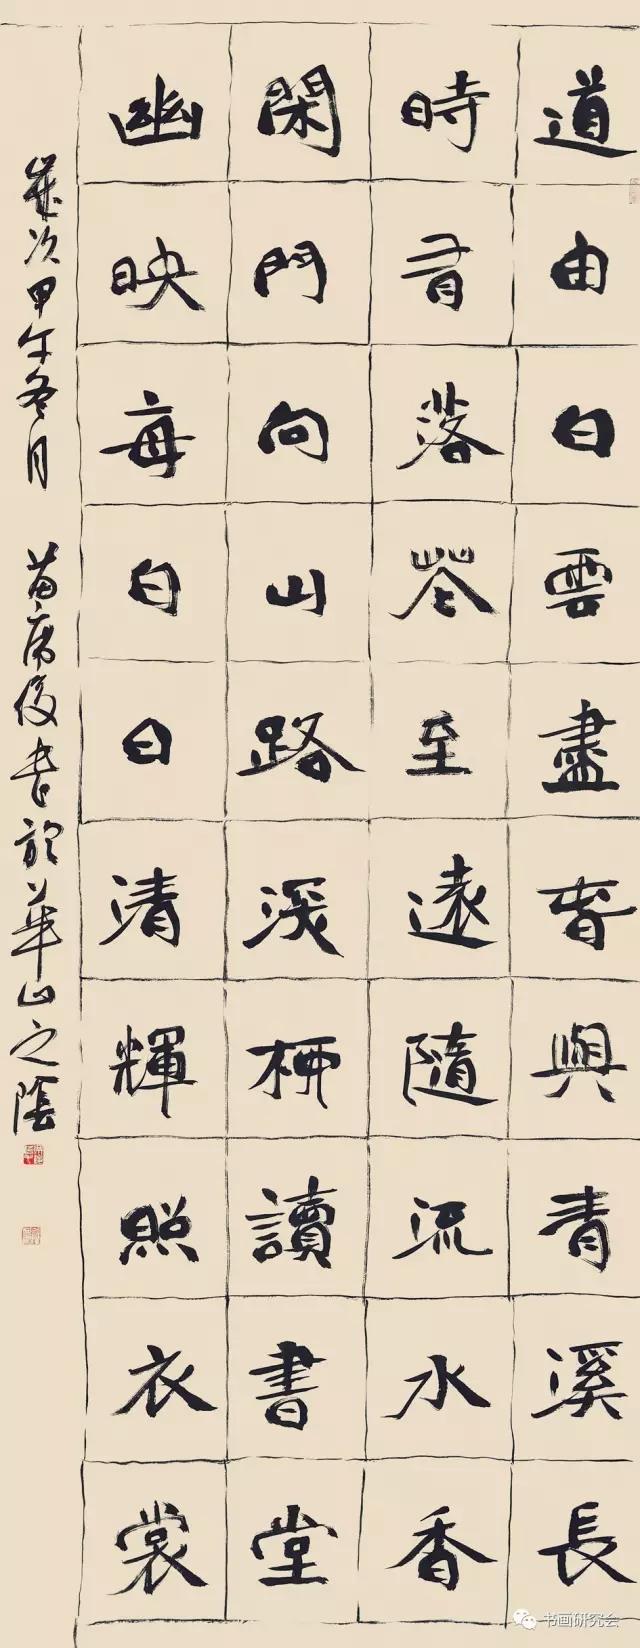 道由白雲盡春與青溪長
時有落花至遠隨流水香
閑門向山路深柳讀書堂
幽映每白日清輝照衣裳
歲次甲午冬月 苗席俊書於華山之陰
书画研究会